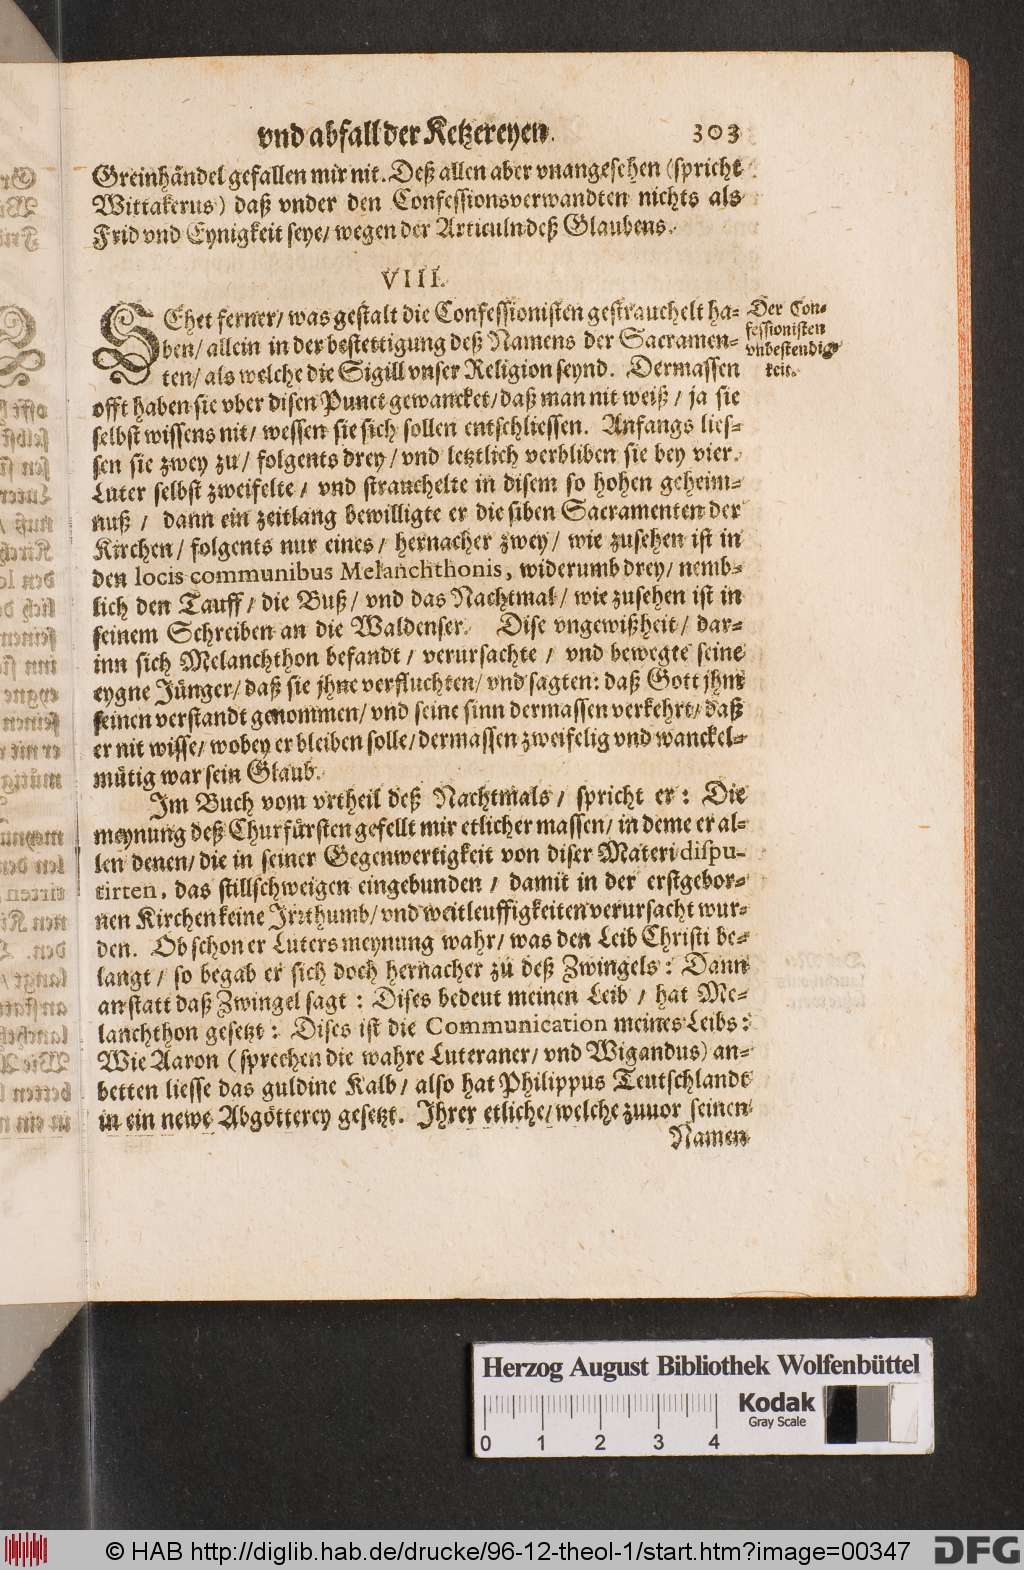 vnd abfall der Ketzereyen. 303
Greinhändel gefallen mir nit. Deß allen aber vnangesehen (spricht
Wittakerus) daß vnder den Confessionsverwandten nichts als
Frid vnd Eynigkeit seye/ wegen der Articuln deß Glaubens.
VIII.
SEhet ferner/ was gestalt die Confessionisten gestrauchelt ha-
ben/ allein in der bestettigung deß Namens der Sacramen-
ten/ als welche die Sigill vnser Religion seynd. Dermassen
offt haben sie vber disen Punct gewancket/ daß man nit weiß/ ja sie
selbst wissens nit/ wessen sie sich sollen entschliessen. Anfangs lies-
sen sie zwey zu/ folgents drey/ vnd letztlich verbliben sie bey vier.
Luter selbst zweifelte/ vnd strauchelte in disem so hohen geheim-
nuß/ dann ein zeitlang bewilligte er die siben Sacramenten der
Kirchen/ folgents nur eines/ hernacher zwey/ wie zusehen ist in
den locis communibus Melanchthonis, widerumb drey/ nemb-
lich den Tauff/ die Buß/ vnd das Nachtmal/ wie zusehen ist in
seinem Schreiben an die Waldenser. Dise vngewißheit/ dar-
inn sich Melanchthon befandt/ verursachte/ vnd bewegte seine
eygne Jünger/ daß sie jhne verfluchten/ vnd sagten: daß Gott jhm
seinen verstandt genommen/ vnd seine sinn dermassen verkehrt/ daß
er nit wisse/ wobey er bleiben solle/ dermassen zweifelig vnd wanckel-
mütig war sein Glaub.
Im Buch vom vrtheil deß Nachtmals/ spricht er: Die
meynung deß Churfürsten gefellt mir etlicher massen/ in deme er al-
len denen/ die in seiner Gegenwertigkeit von diser Materi dispu-
tirten, das stillschweigen eingebunden/ damit in der erstgebor-
nen Kirchen keine Irrthumb/ vnd weitleuffigkeiten verursacht wur-
den. Ob schon er Luters meynung wahr/ was den Leib Christi be-
langt/ so begab er sich doch hernacher zu deß Zwingels: Dann
anstatt daß Zwingel sagt: Dises bedeut meinen Leib/ hat Me-
lanchthon gesetzt: Dises ist die Communication meines Leibs:
Wie Aaron (sprechen die wahre Luteraner/ vnd Wigandus) an-
betten liesse das guldine Kalb/ also hat Philippus Teutschlandt
in ein newe Abgötterey gesetzt. Ihrer etliche/ welche zuuor seinen
Namen
Der Con-
fessionisten
vnbestendig-
keit.
Herzog August Bibliothek Wolfenbüttel
Kodak
Gray Scale
0 1 2 3 4
© HAB http://diglib.hab.de/drucke/96-12-theol-1/start.htm?image=00347
DFG